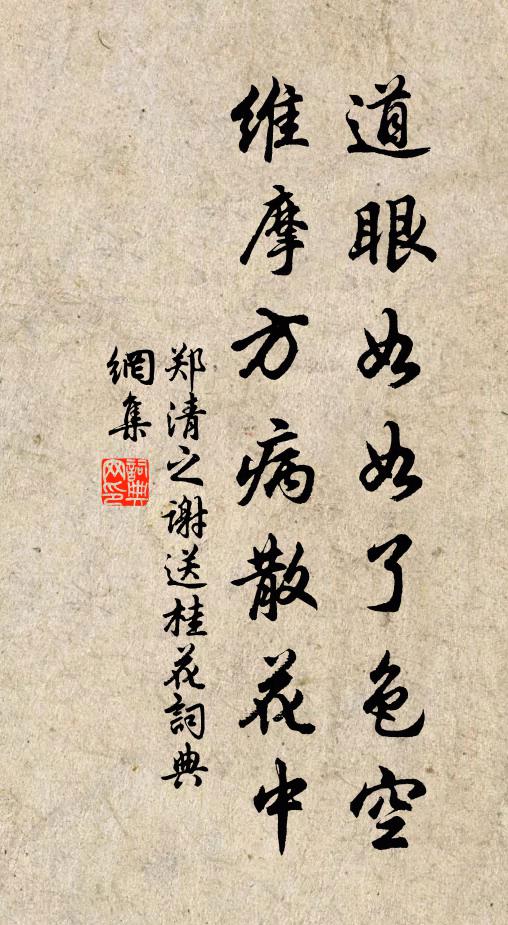 道眼如如了色空
维摩方病散花中
郑清之谢送桂花詞典
網集
詞典網印